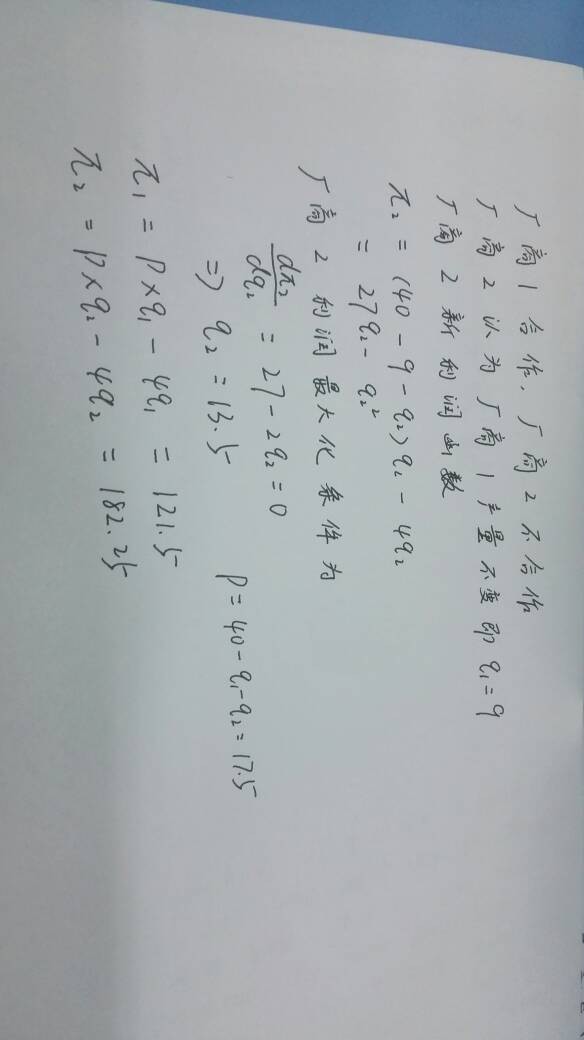 厂商1合作，厂商2不合作
厂商2认为厂商1产量不变即 q₁=9
厂商2新利润函数
π₂ = (40-9-q₂)q₂-4q₂
= 27q₂-q₂²
厂商2利润最大化条件为
dπ₂/dq₂ = 27-2q₂=0
=> q₂=13.5 P=40-q₁-q₂=17.5
π₁ = P×q₁-4q₁ = 121.5
π₂ = P×q₂-4q₂ = 182.25